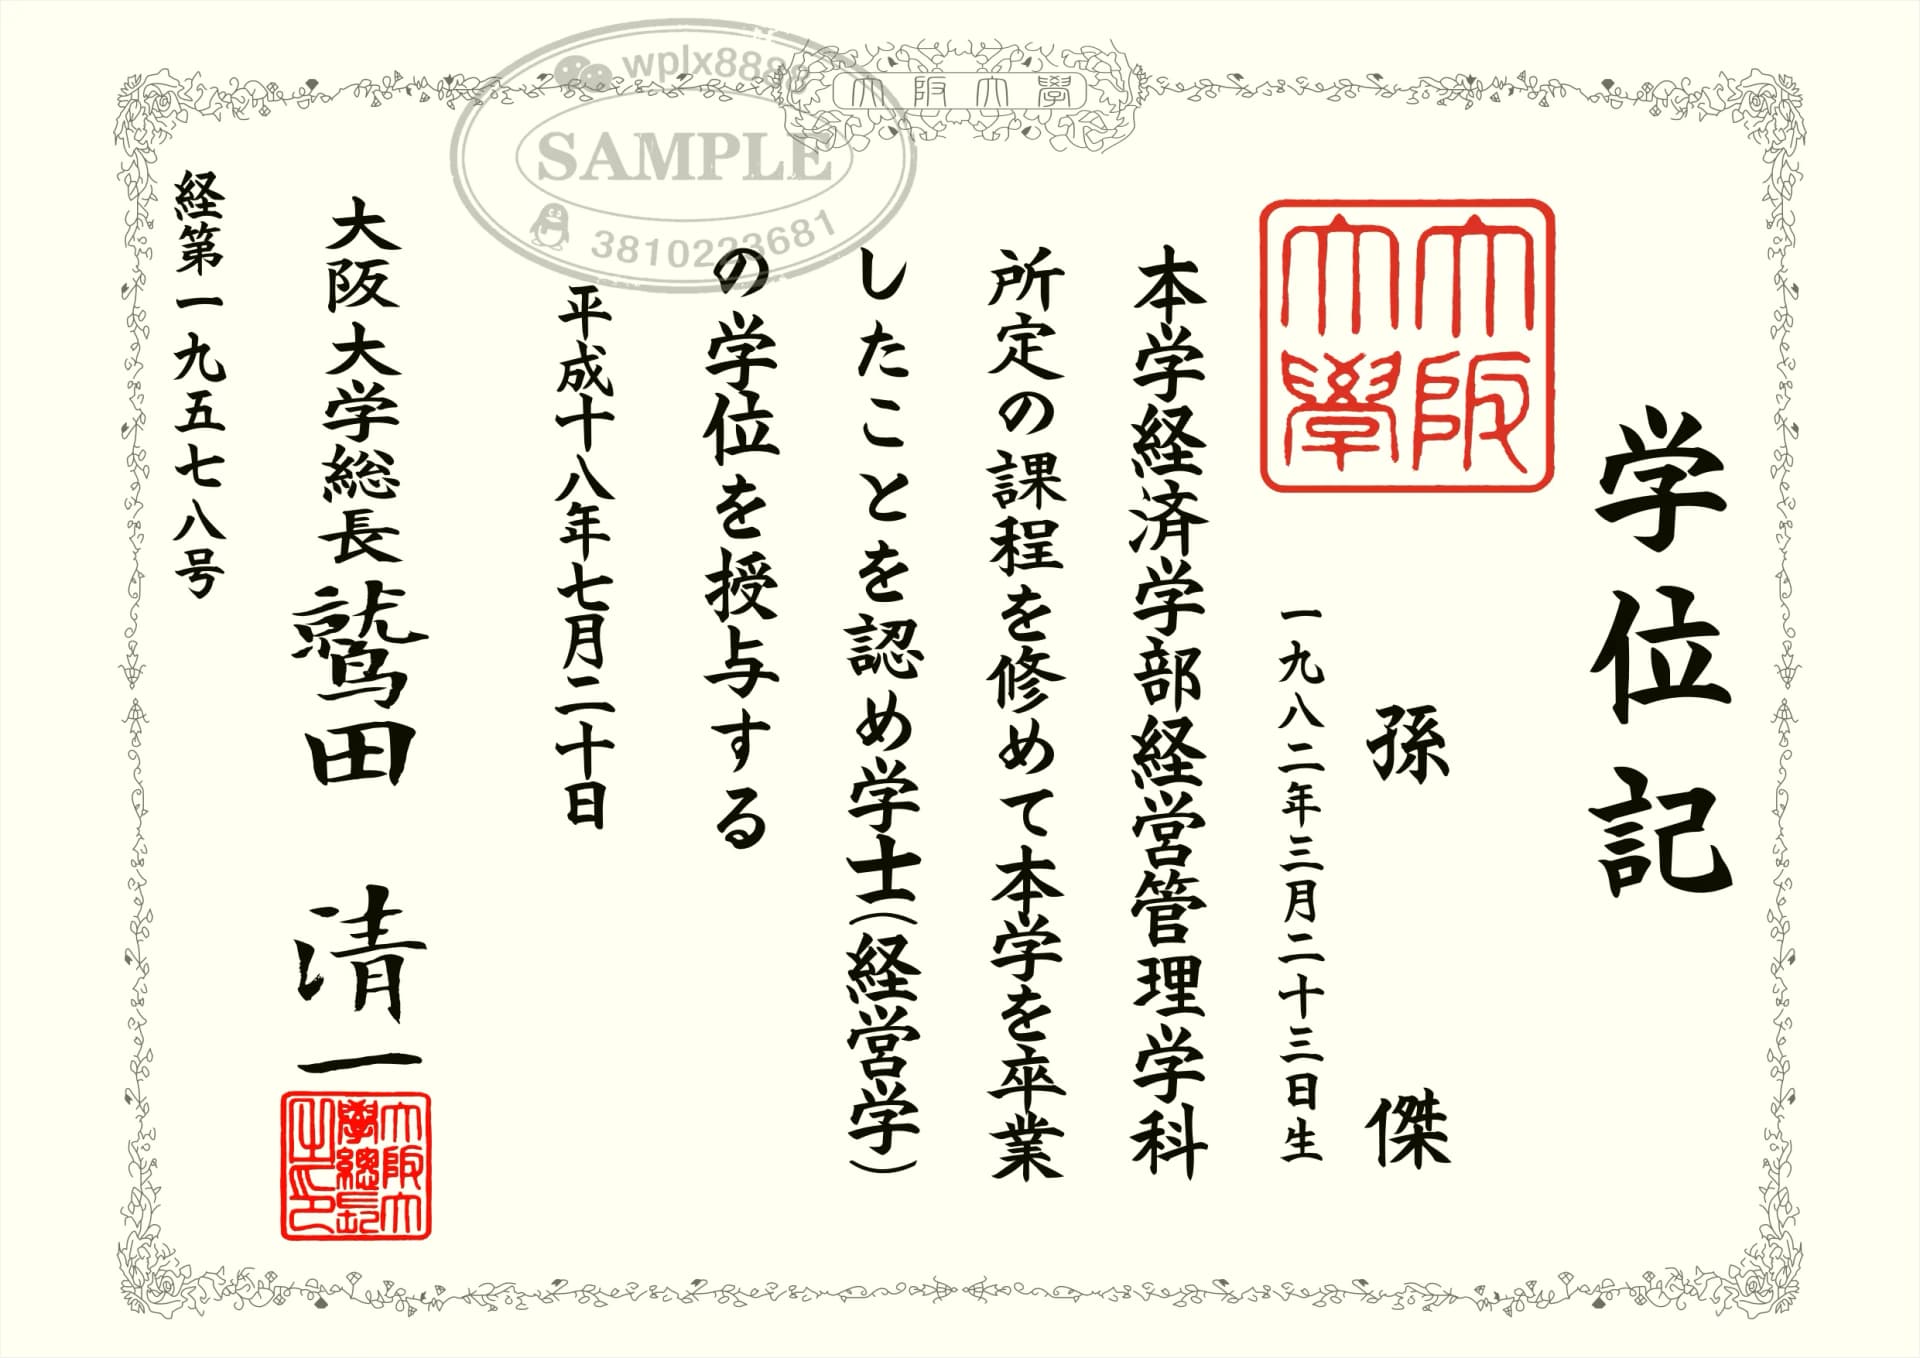 大阪大學
学位記
大阪大學
孫 傑
一九八二年三月二十三日生
本学経済学部経営管理学科
所定の課程を修めて本学を卒業
したことを認め学士(経営学)
の学位を授与する
平成十八年七月二十日
大阪大学総長 鷲田 清一
大阪大學總長之印
経第一九五七八号
SAMPLE
3810223681